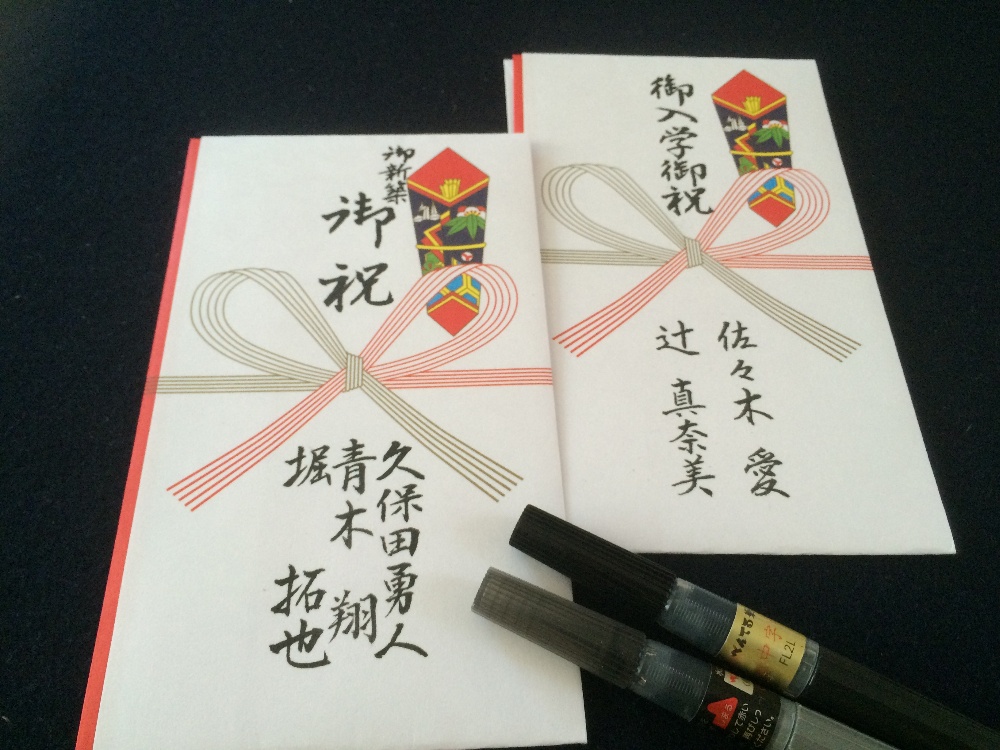 御新築
御祝
久保田勇人
青木 翔
堀 拓也
御入学御祝
佐々木 愛
辻 真奈美
ぺんてる筆
中字
FL2L